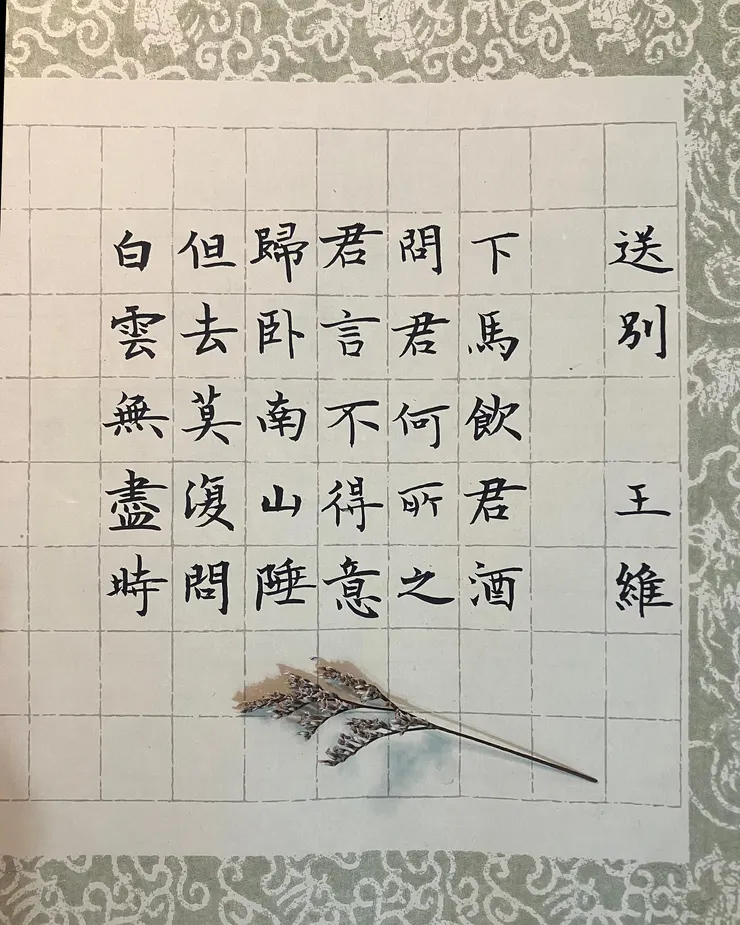 送別 王維
下馬飲君酒
問君何所之
君言不得意
歸卧南山陲
但去莫復問
白雲無盡時